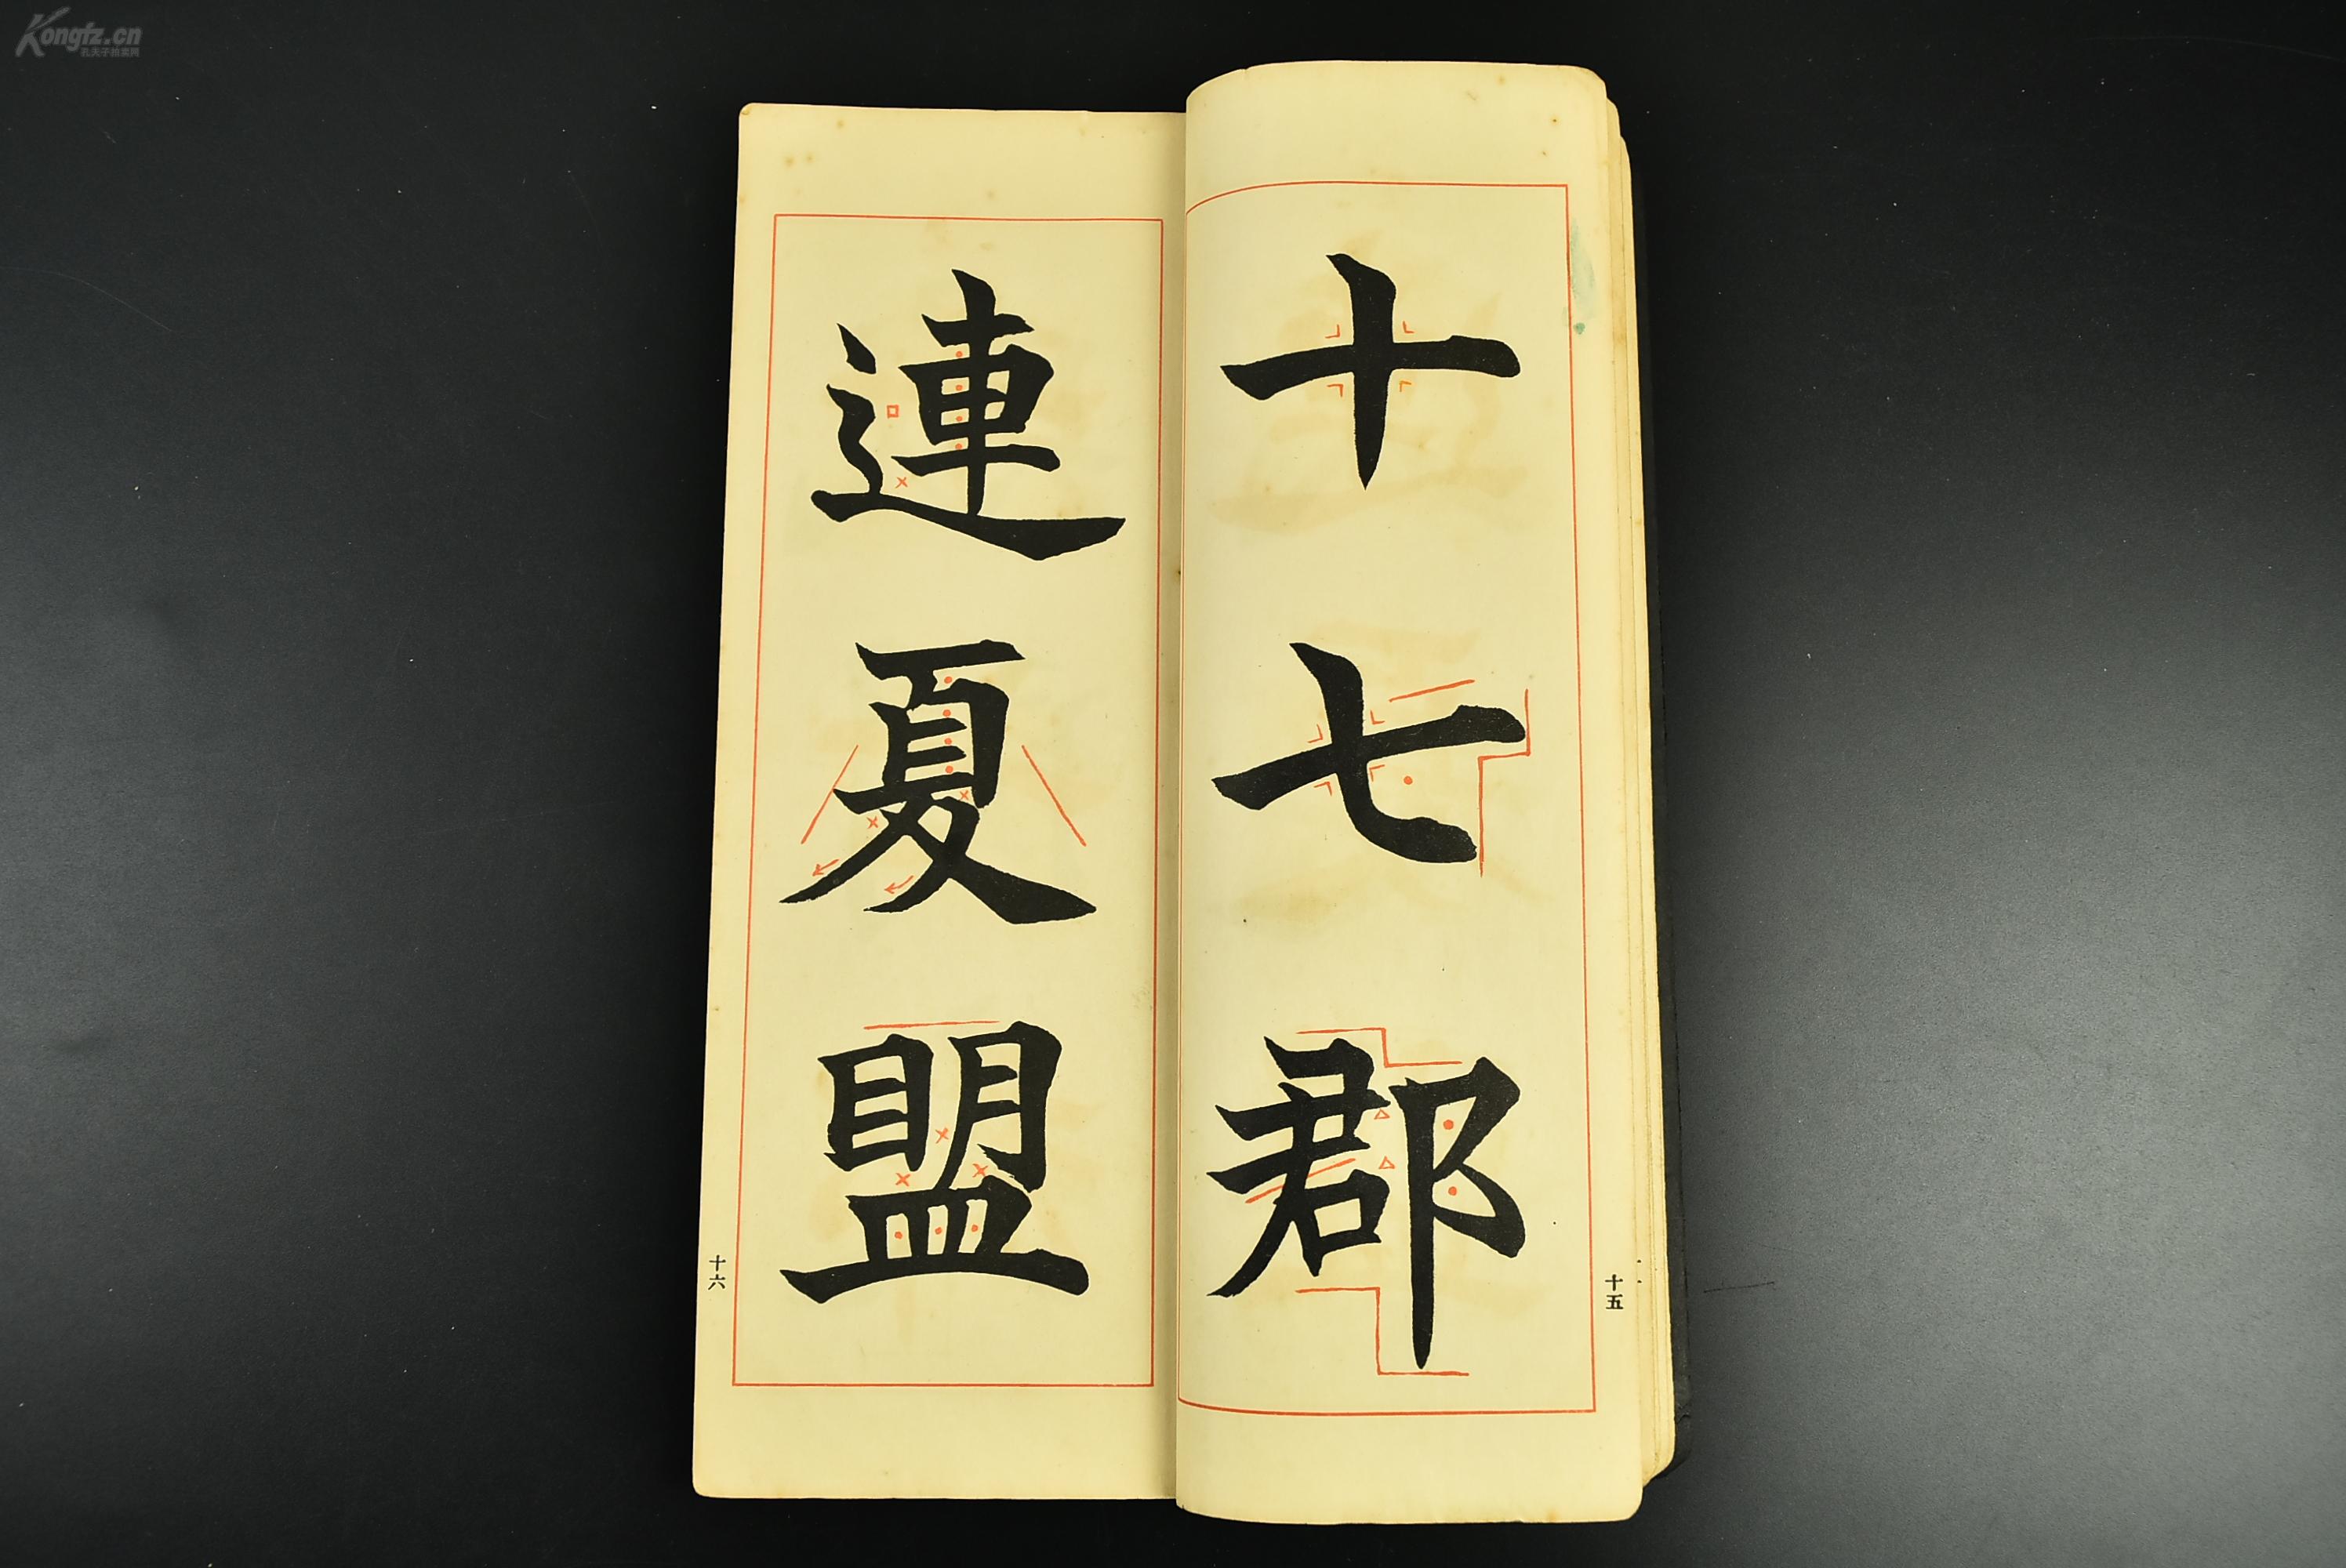 Kongfz.cn
孔夫子拍卖网
十七郡
十五
連夏盟
十六